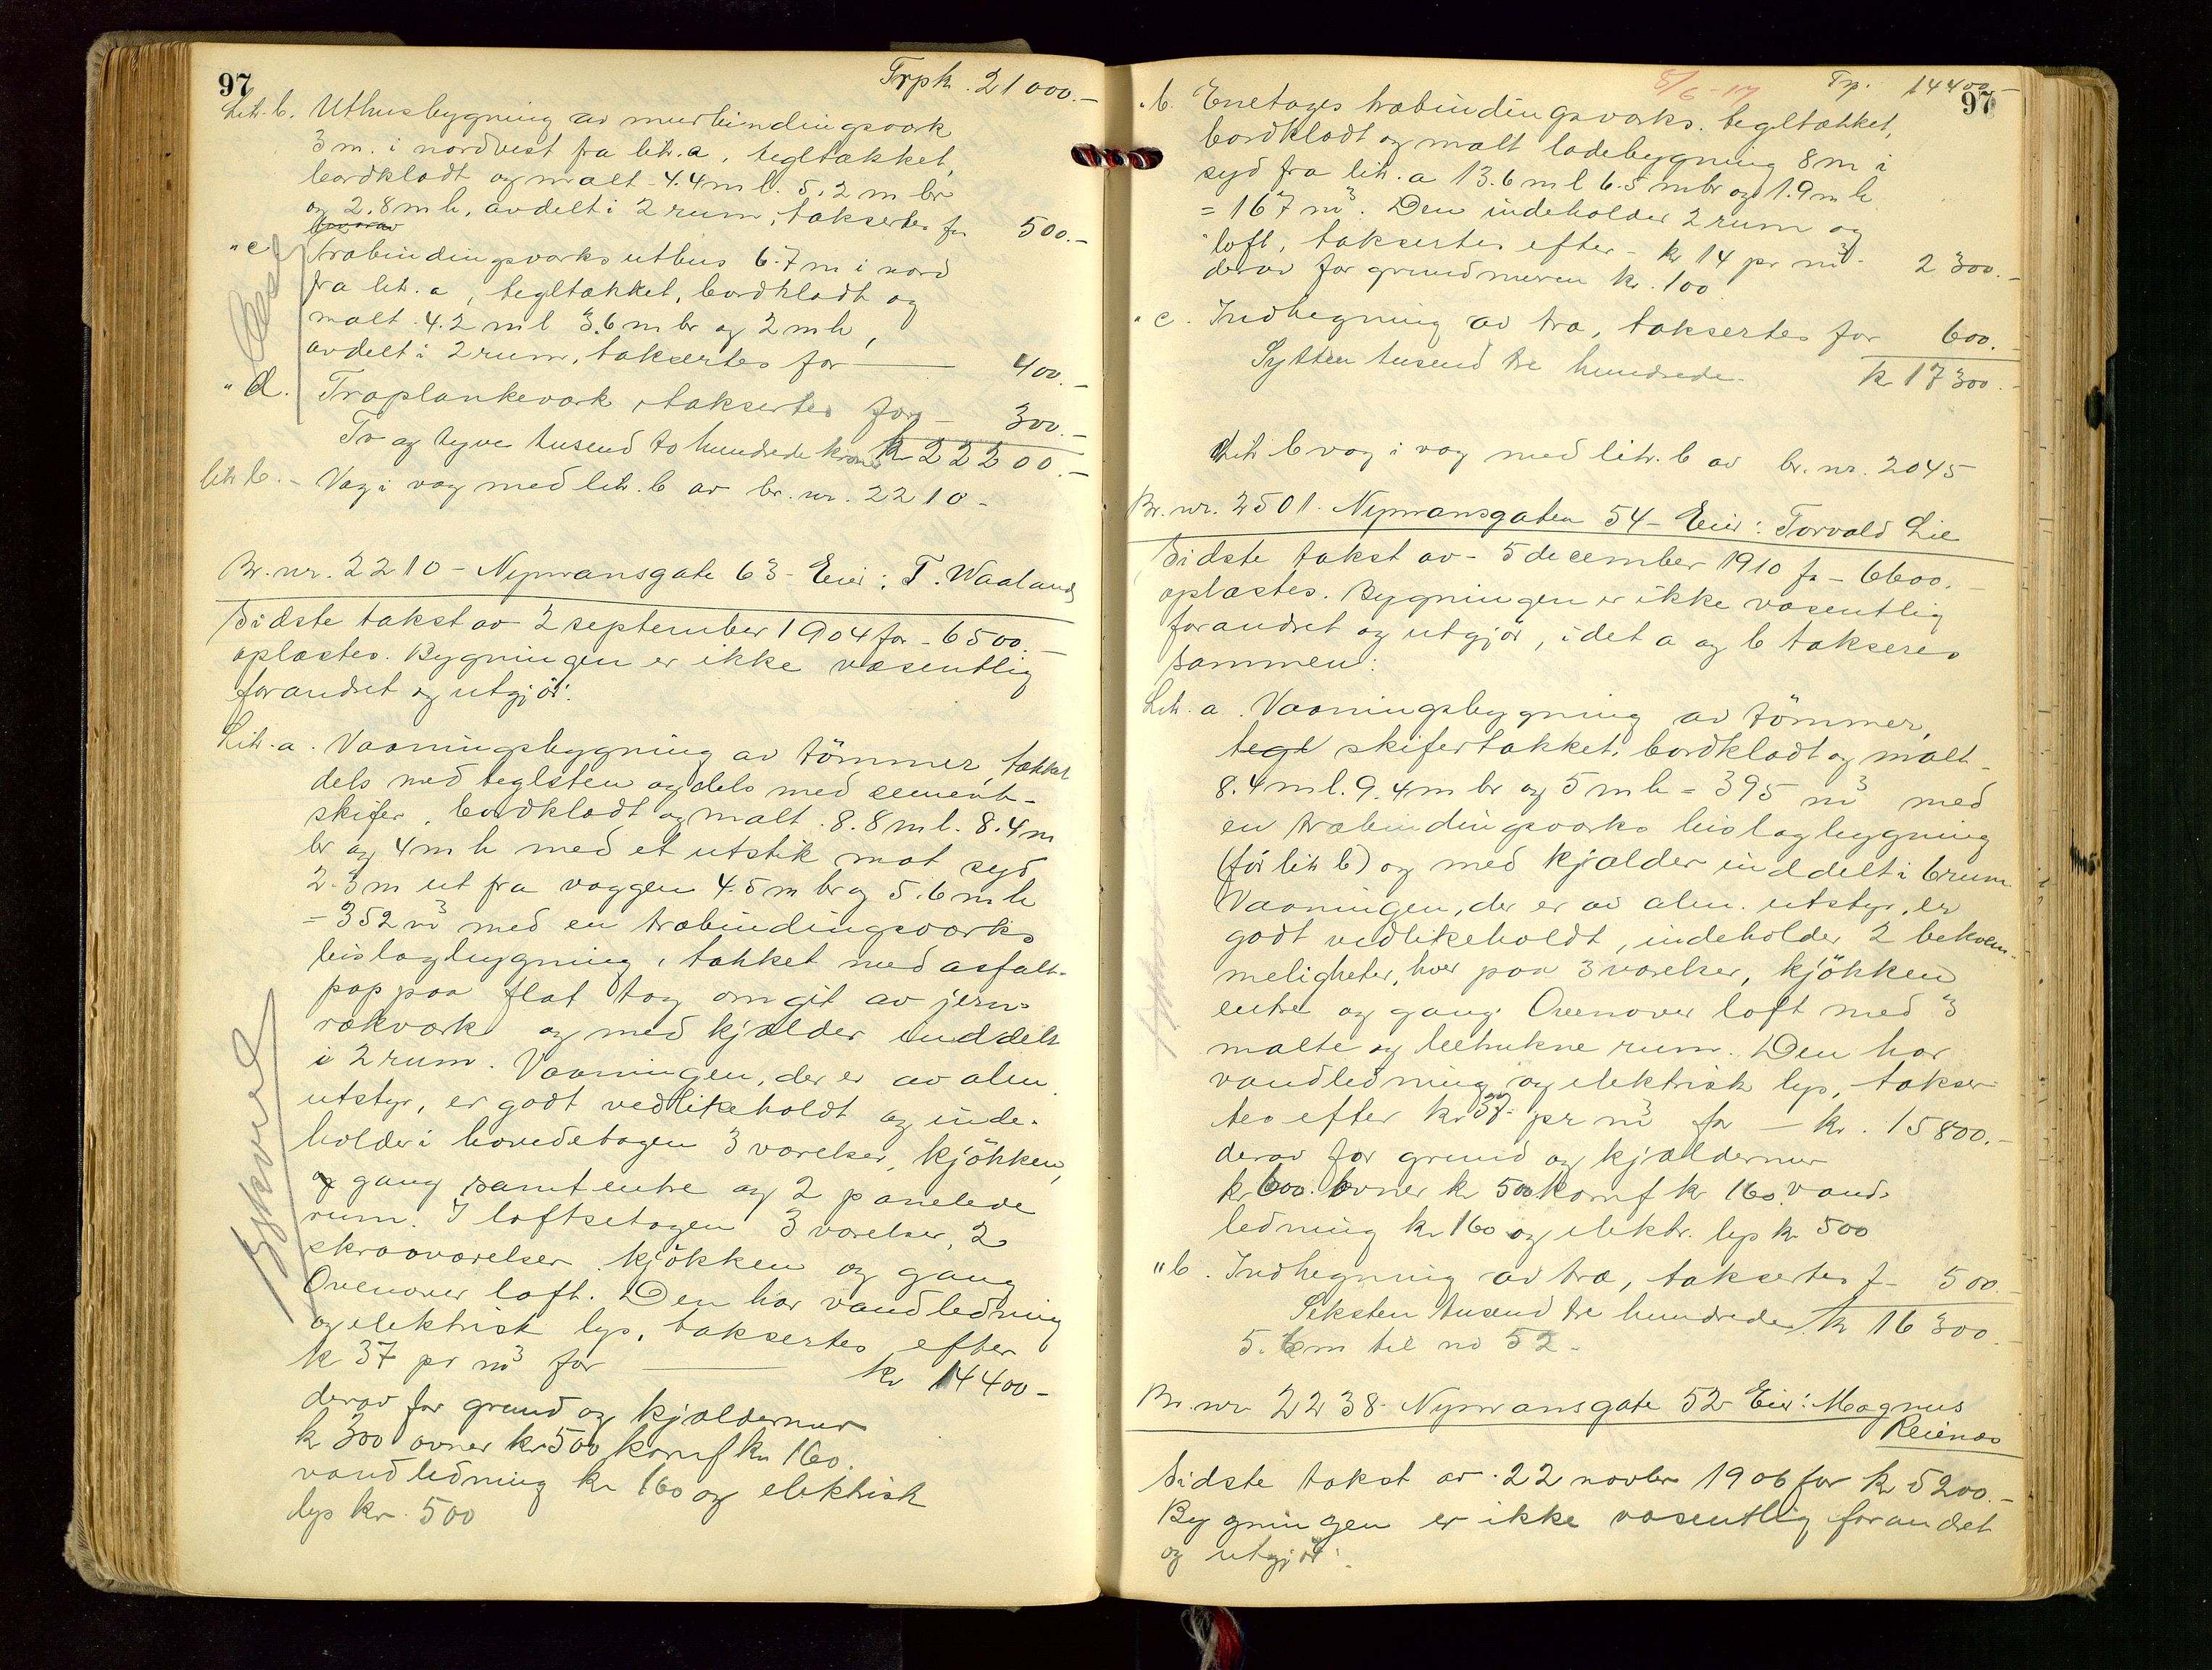 97
Trpk. 21 000.-
Litr. b. Uthusbygning av murbindingsværk
3 m. i nordvest fra litr. a, tegltækket,
bordklædt og malt - 4.4 m l. 5.2 m br
og 2.8 m h, avdelt i 2 rum, taksertes fr 500.-
" c Træbindingsværks uthus 6.7 m i nord
fra litr. a, tegltækket, bordklædt og
malt. 4.2 m l 3.6 m br og 2 m h,
avdelt i 2 rum, taksertes for 400.-
" d. Træplankeværk, taksertes for - 300.-
To og tyve tusend to hundrede kroner kr 22200.-
litr b. - Væg i væg med litr. b av br. nr. 2210 -
Br. nr. 2210 - Nymansgate 63 - Eier: T. Waaland
Sidste takst av 2 september 1904 for - 6500.-
oplæstes. Bygningen er ikke væsentlig
forandret og utgjör:
Litr. a. Vaaningsbygning av tömmer, tækket
dels med teglsten og dels med cement-
skifer, bordklædt og malt. 8.8 m l. 8.4 m
br og 4 m h med et utstik mot syd
2.3 m ut fra væggen 4.5 m br og 5.6 m h
= 352 m³ med en træbindingsværks
bislagbygning, tækket med asfalt-
pap paa flat tag omgit av jern-
rækværk og med kjælder inddelt
i 2 rum. Vaaningen, der er av alm.
utstyr, er godt vedlikeholdt og inde-
holder i hovedetagen 3 værelser, kjökken,
og gang samt entre og 2 panelede
rum. I loftsetagen 3 værelser, 2
skraaværelser, kjökken og gang
Ovenover loft. Den har vandledning
og elektrisk lys, taksertes efter
kr 37 pr m³ for kr 14400 -
derav for grund og kjældermur
kr 300 ovner kr 500 komf kr 160.
vandledning kr 160 og elektrisk
lys kr. 500
Jykvel
8/6-17
Trp. 14400.-
97
" b. Enetages træbindingsværks. tegltækket,
bordklædt og malt ladebygning 8 m i
syd fra litr. a 13.6 m l 6.5 m br og 1.9 m h
= 167 m³. Den indeholder 2 rum og
loft, taksertes efter - kr 14 pr m³ - 2 300.-
derav for grundmuren kr. 100
" c. Indhegning av træ, taksertes for 600.-
Sytten tusend tre hundrede - kr 17 300.-
Litr b væg i væg med litr. b av br. nr. 2045
Br. nr. 2501. Nymansgaten 54 - Eier: Torvald Lie
Sidste takst av - 5 december 1910 fr - 6600.-
oplæstes. Bygningen er ikke væsentlig
forandret og utgjör, idet a og b takseres
sammen:
Litr. a. Vaaningsbygning av tömmer,
tegl skifertækket, bordklædt og malt -
8.4 m l. 9.4 m br og 5 m h = 395 m³ med
en træbindingsværks bislagbygning
(för litr b) og med kjælder inddelt i 6 rum.
Vaaningen, der er av alm. utstyr, er
godt vedlikeholdt, indeholder 2 bekvem-
meligheter, hver paa 3 værelser, kjökken
entre og gang. Ovenover loft med 3
malte og betrukne rum. Den har
vandledning og elektrisk lys, takser-
tes efter kr 37 pr m³ for - kr. 15 800.-
derav for grund og kjældermur
kr 600. ovner kr 500 komf kr 160. vand-
ledning kr 160 og elektr. lys kr 500
" b. Indhegning av træ, taksertes f - 500.-
Seksten tusend tre hundrede kr 16 300.-
5.6 m til no 52 -
Br. nr 2238 - Nymansgate 52 - Eier: Magnus
Reienæs
Sidste takst av 22 novbr 1906 for kr 5200.-
Bygningen er ikke væsentlig forandret
og utgjör: